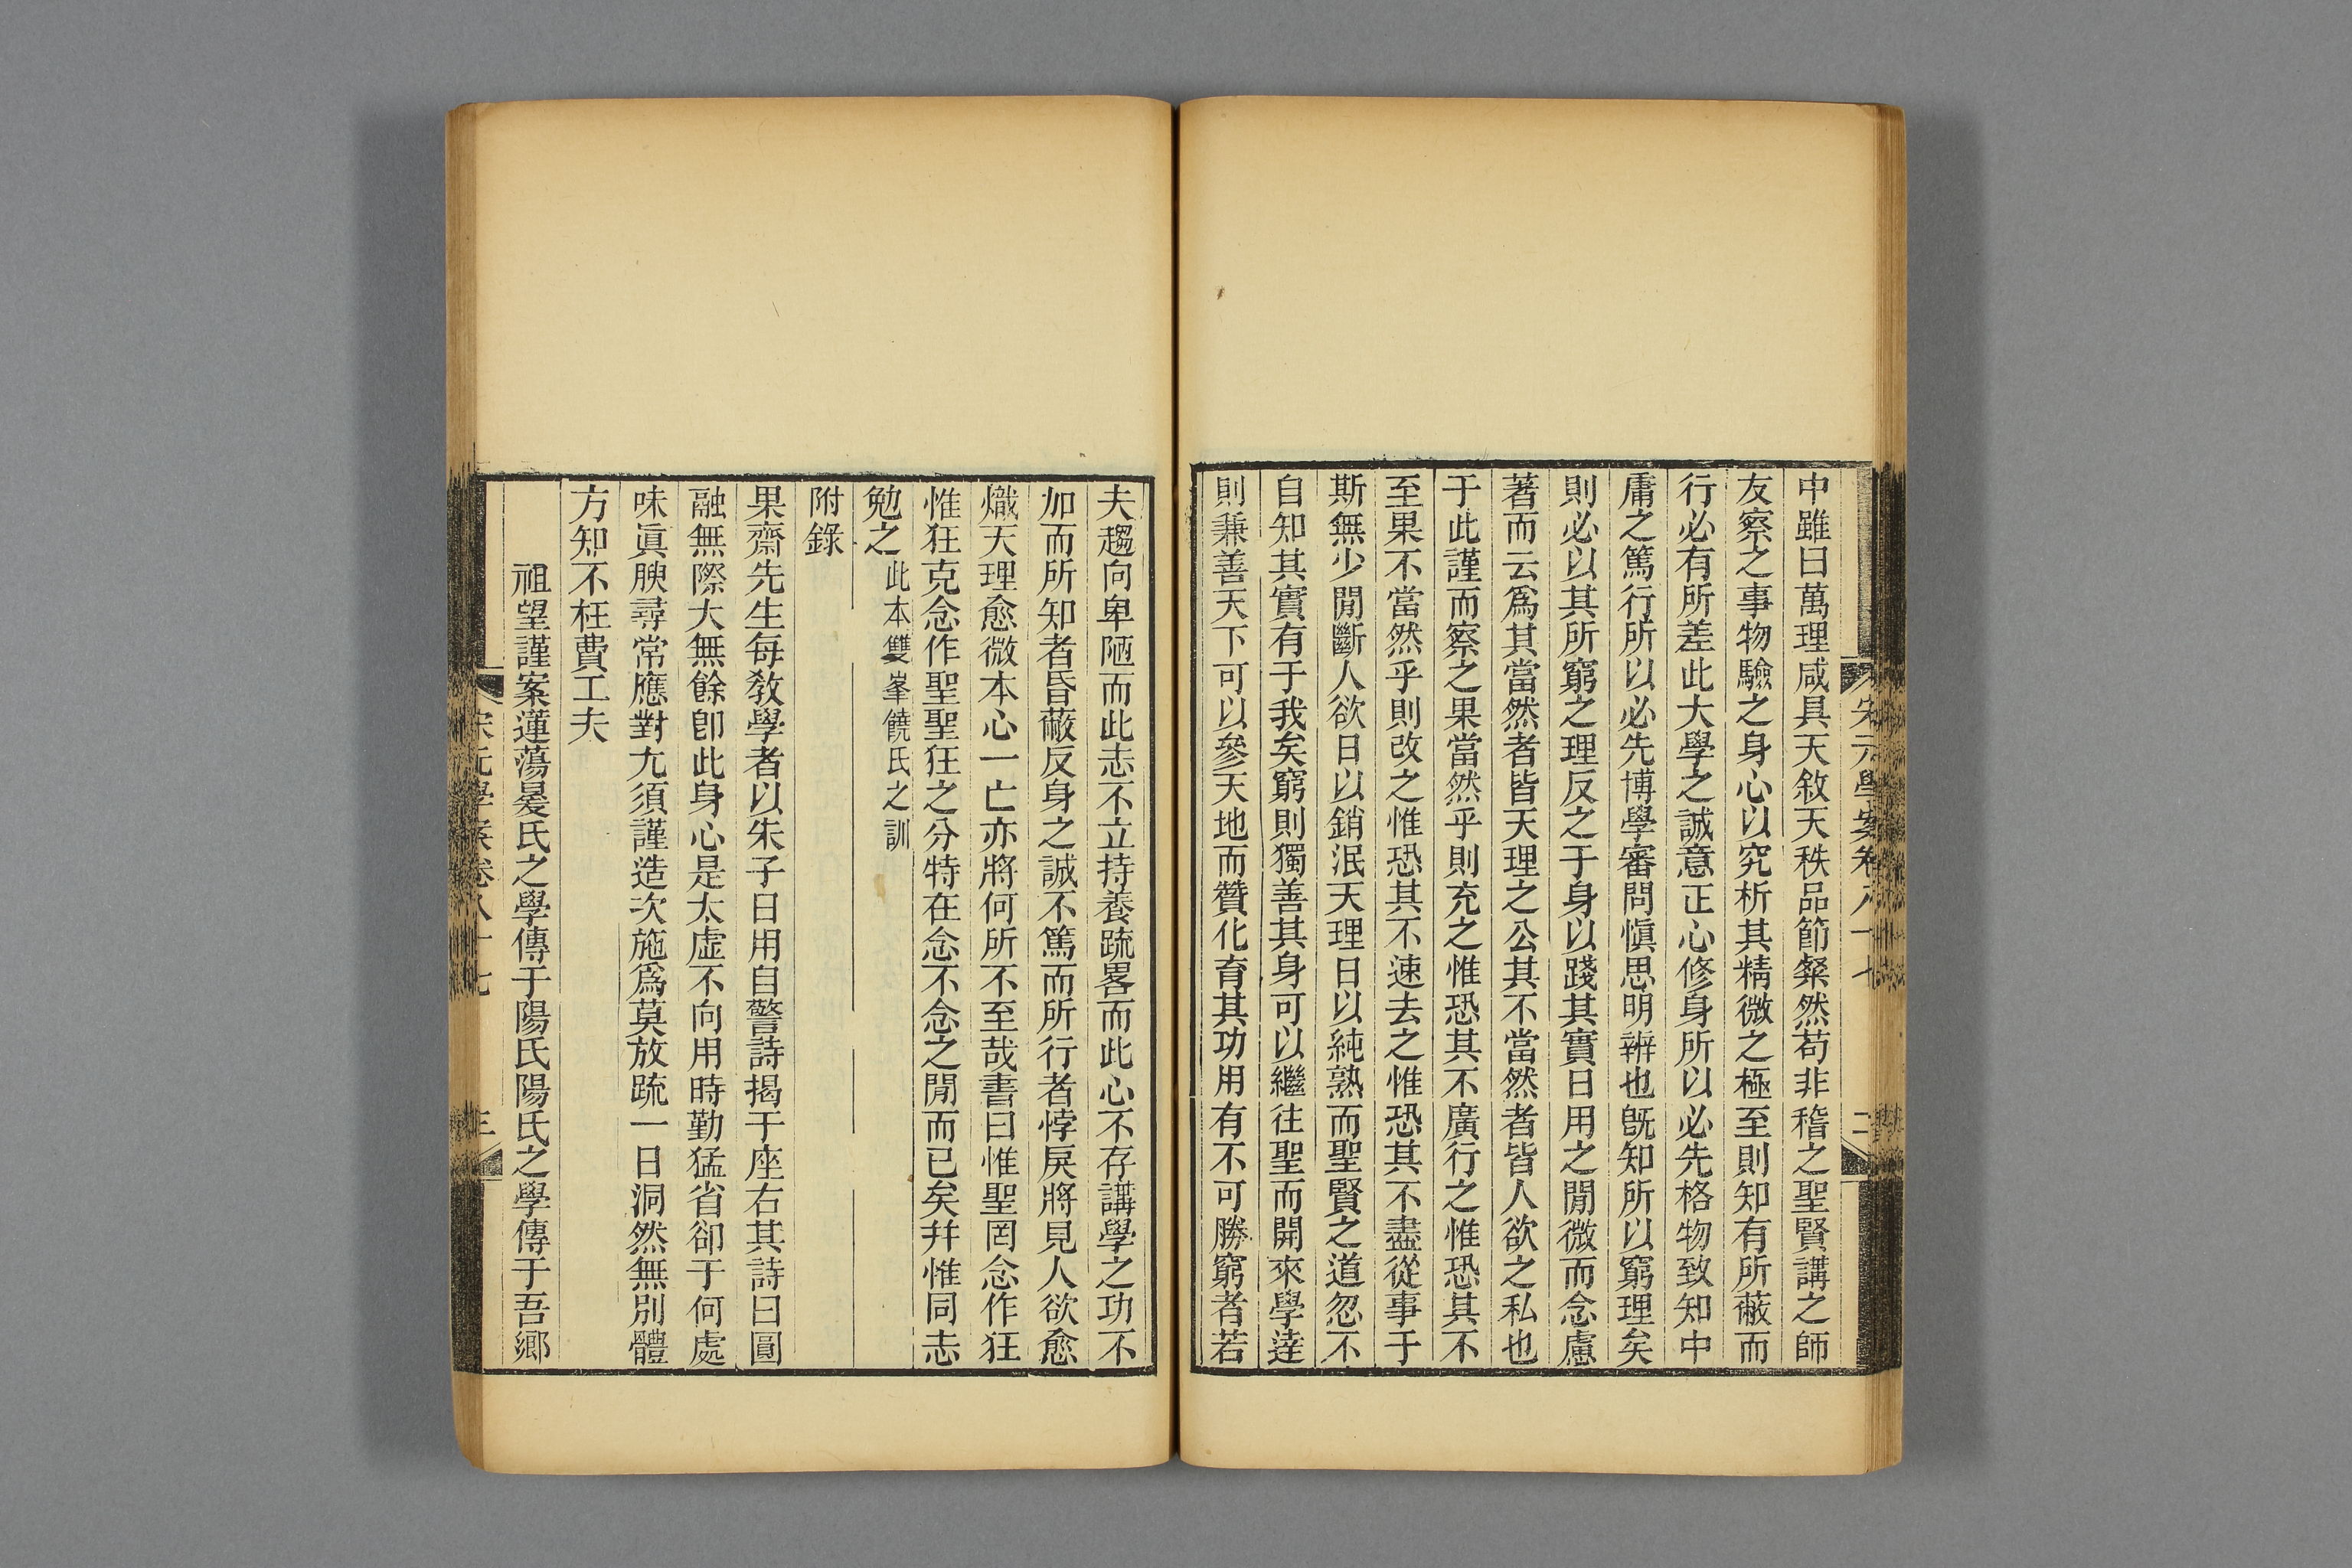 宋元學案卷八十七
二
中雖曰萬理咸具天敘天秩品節粲然苟非稽之聖賢講之師
友察之事物驗之身心以究析其精微之極至則知有所蔽而
行必有所差此大學之誠意正心修身所以必先格物致知中
庸之篤行所以必先博學審問愼思明辨也旣知所以窮理矣
則必以其所窮之理反之于身以踐其實日用之閒微而念慮
著而云爲其當然者皆天理之公其不當然者皆人欲之私也
于此謹而察之果當然乎則充之惟恐其不廣行之惟恐其不
至果不當然乎則改之惟恐其不速去之惟恐其不盡從事于
斯無少閒斷人欲日以銷泯天理日以純熟而聖賢之道忽不
自知其實有于我矣窮則獨善其身可以繼往聖而開來學達
則兼善天下可以參天地而贊化育其功用有不可勝窮者若
夫趨向卑陋而此志不立持養疏畧而此心不存講學之功不
加而所知者昏蔽反身之誠不篤而所行者悖戾將見人欲愈
熾天理愈微本心一亡亦將何所不至哉書曰惟聖罔念作狂
惟狂克念作聖聖狂之分特在念不念之閒而已矣幷惟同志
勉之此本雙峯饒氏之訓
附錄
果齋先生每敎學者以朱子日用自警詩揭于座右其詩曰圓
融無際大無餘卽此身心是太虛不向用時勤猛省卻于何處
味眞腴尋常應對尤須謹造次施爲莫放疏一日洞然無別體
方知不枉費工夫
祖望謹案蓮蕩晏氏之學傳于陽氏陽氏之學傳于吾鄉
宋元學案卷八十七
三